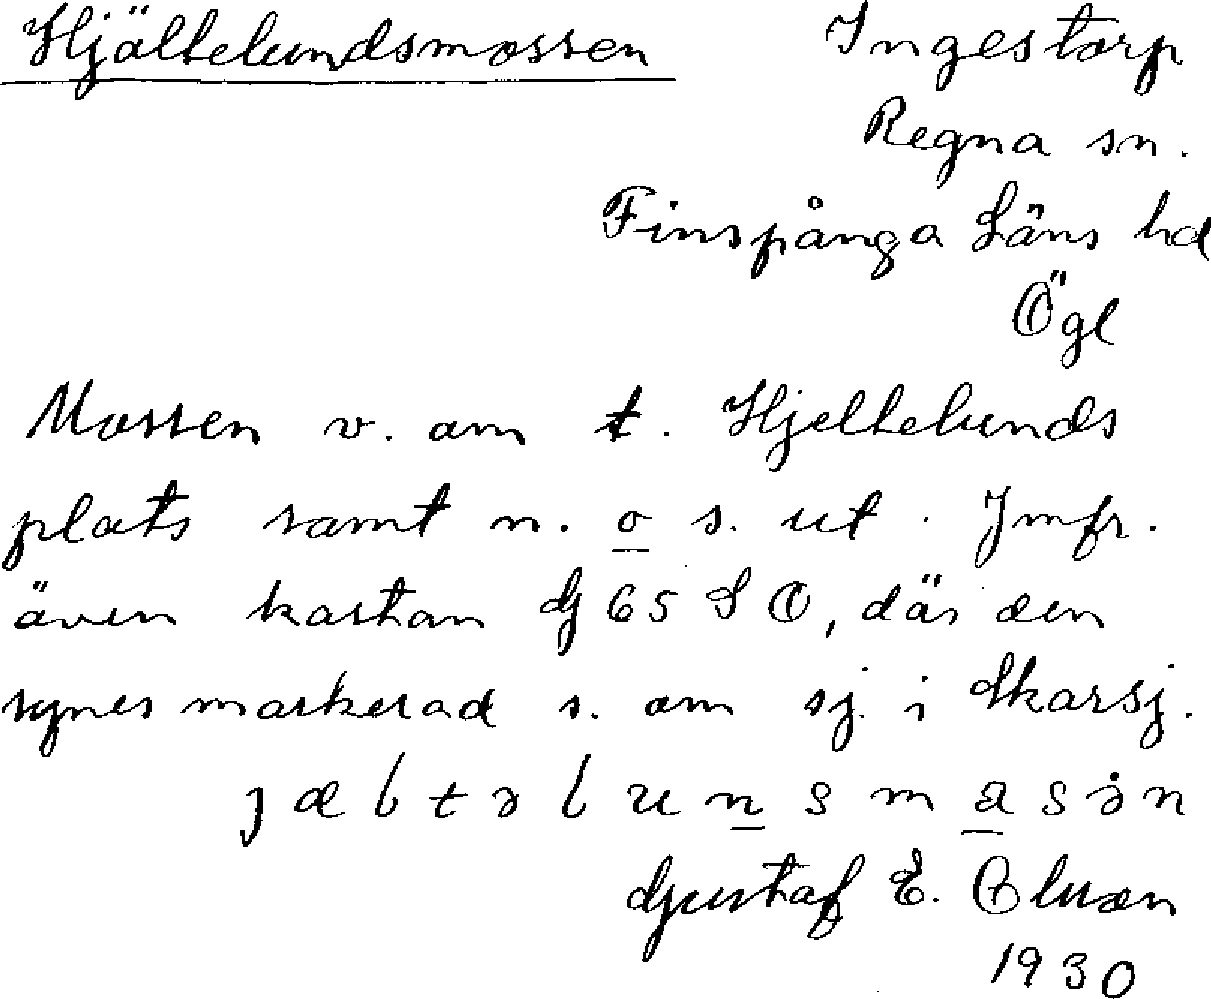 Hjältelundsmossen Ingestorp
Regna sn.
Finspånga Läns hd
Ögl
Mossen v. om t. Hjeltelunds
plats samt n. o s. ut. Jmfr.
även kartan G 65 S O, där den
synes markerad s. om sj. i Skarsj.
Gustaf E.
1930